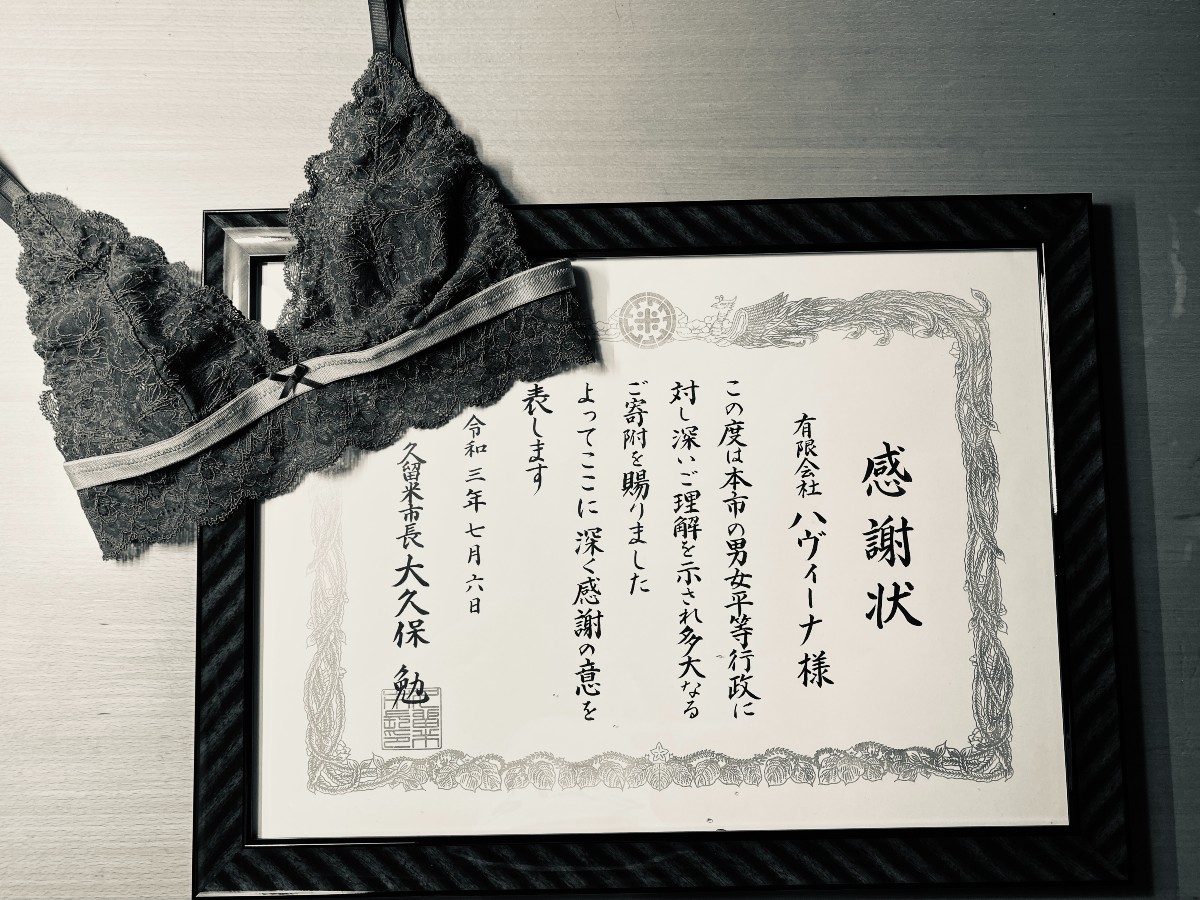 感謝状
有限会社 ハヴィーナ 様
この度は本市の男女平等行政に
対し深いご理解を示され多大なる
ご寄附を賜りました
よってここに深く感謝の意を
表します
令和三年七月六日
久留米市長 大久保 勉